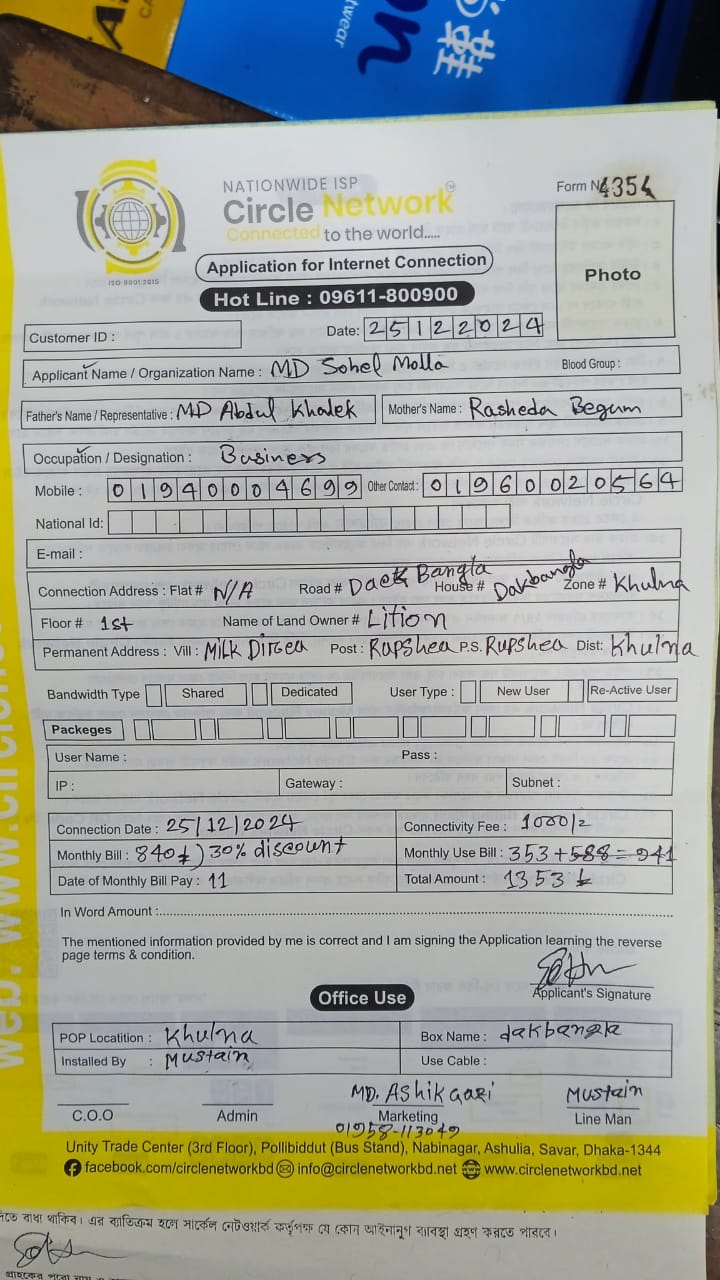 twear
on
NATIONWIDE ISP
Circle Network
Connected to the world.....
ISO 9001:2015
Form No 4354
Photo
Application for Internet Connection
Hot Line : 09611-800900
Customer ID :
Date: 25122024
Applicant Name / Organization Name : MD Sohel Molla Blood Group :
Father's Name / Representative : MD Abdul Khalek Mother's Name : Rasheda Begum
Occupation / Designation : Business
Mobile : 01940004699 Other Contact : 01960020564
National Id:
E-mail :
Connection Address : Flat# N/A Road # Daek Bangla House # Dakbangla Zone # Khulna
Floor # 1st Name of Land Owner # Lition
Permanent Address : Vill : Milk Dircea Post : Rupshea P.S. Rupshea Dist: Khulna
Bandwidth Type Shared Dedicated User Type : New User Re-Active User
Packeges
User Name : Pass :
IP : Gateway : Subnet :
Connection Date : 25/12/2024 Connectivity Fee : 1000/=
Monthly Bill : 840৳) 30% discount Monthly Use Bill : 353+588=941
Date of Monthly Bill Pay : 11 Total Amount : 1353৳
In Word Amount :
The mentioned information provided by me is correct and I am signing the Application learning the reverse
page terms & condition.
Applicant's Signature
Office Use
POP Locatition : Khulna Box Name : dakbangla
Installed By : Mustain Use Cable :
C.O.O Admin MD. Ashik Gazi Mustain
Marketing Line Man
01958-113049
Unity Trade Center (3rd Floor), Pollibiddut (Bus Stand), Nabinagar, Ashulia, Savar, Dhaka-1344
facebook.com/circlenetworkbd info@circlenetworkbd.net www.circlenetworkbd.net
দিতে বাধা থাকিব। এর ব্যতিক্রম হলে সার্কেল নেটওয়ার্ক কর্তৃপক্ষ যে কোন আইনানুগ ব্যবস্থা গ্রহণ করতে পারবে।